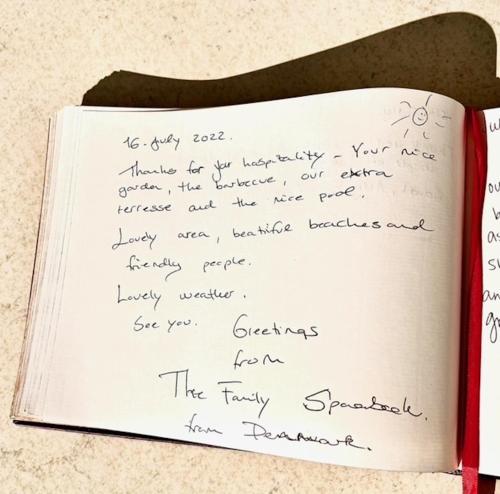 16. July 2022.
Thanks for your hospitality - Your nice
garden, the barbecue, our extra
terresse and the nice pool.
Lovely area, beatiful beaches and
friendly people.
Lovely weather.
See you. Greetings
from
The Family
from Denmark.